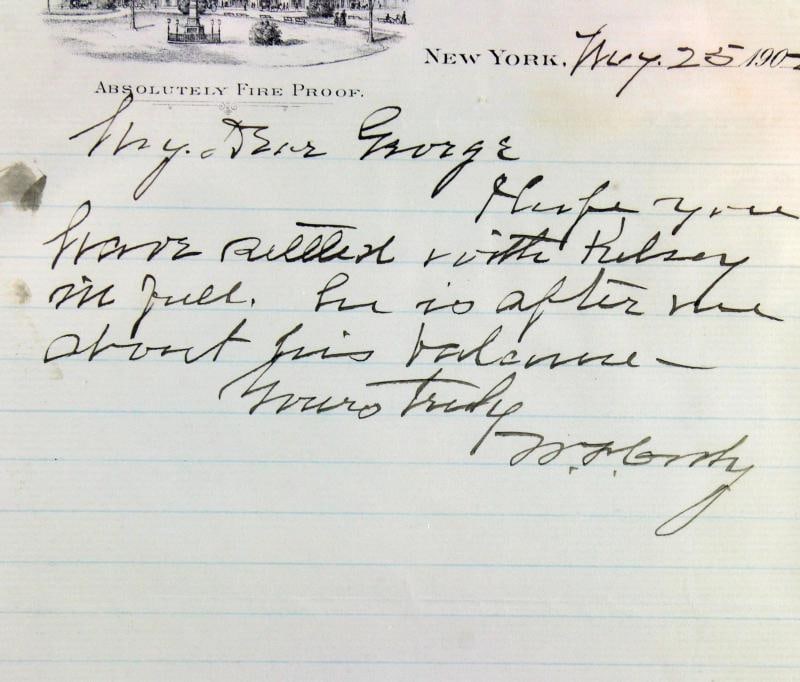 NEW YORK, May. 25 190
ABSOLUTELY FIRE PROOF.
My. Dear George
I hope you
have settled with Kelsey
in full. he is after me
about his balance—
Yours truly
W. F. Cody